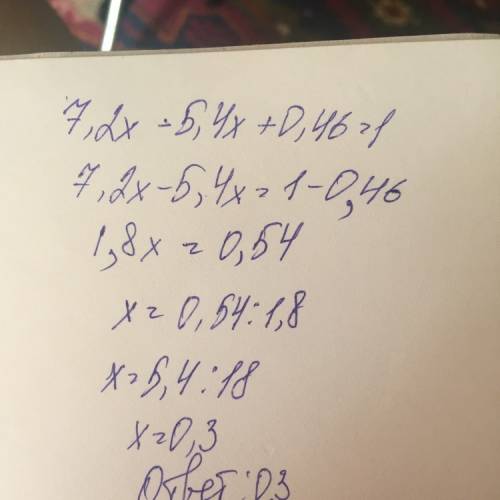 7,2x - 5,4x + 0,46 = 1
7,2x - 5,4x = 1 - 0,46
1,8x = 0,54
x = 0,54 : 1,8
x = 5,4 : 18
x = 0,3
Ответ: 0,3